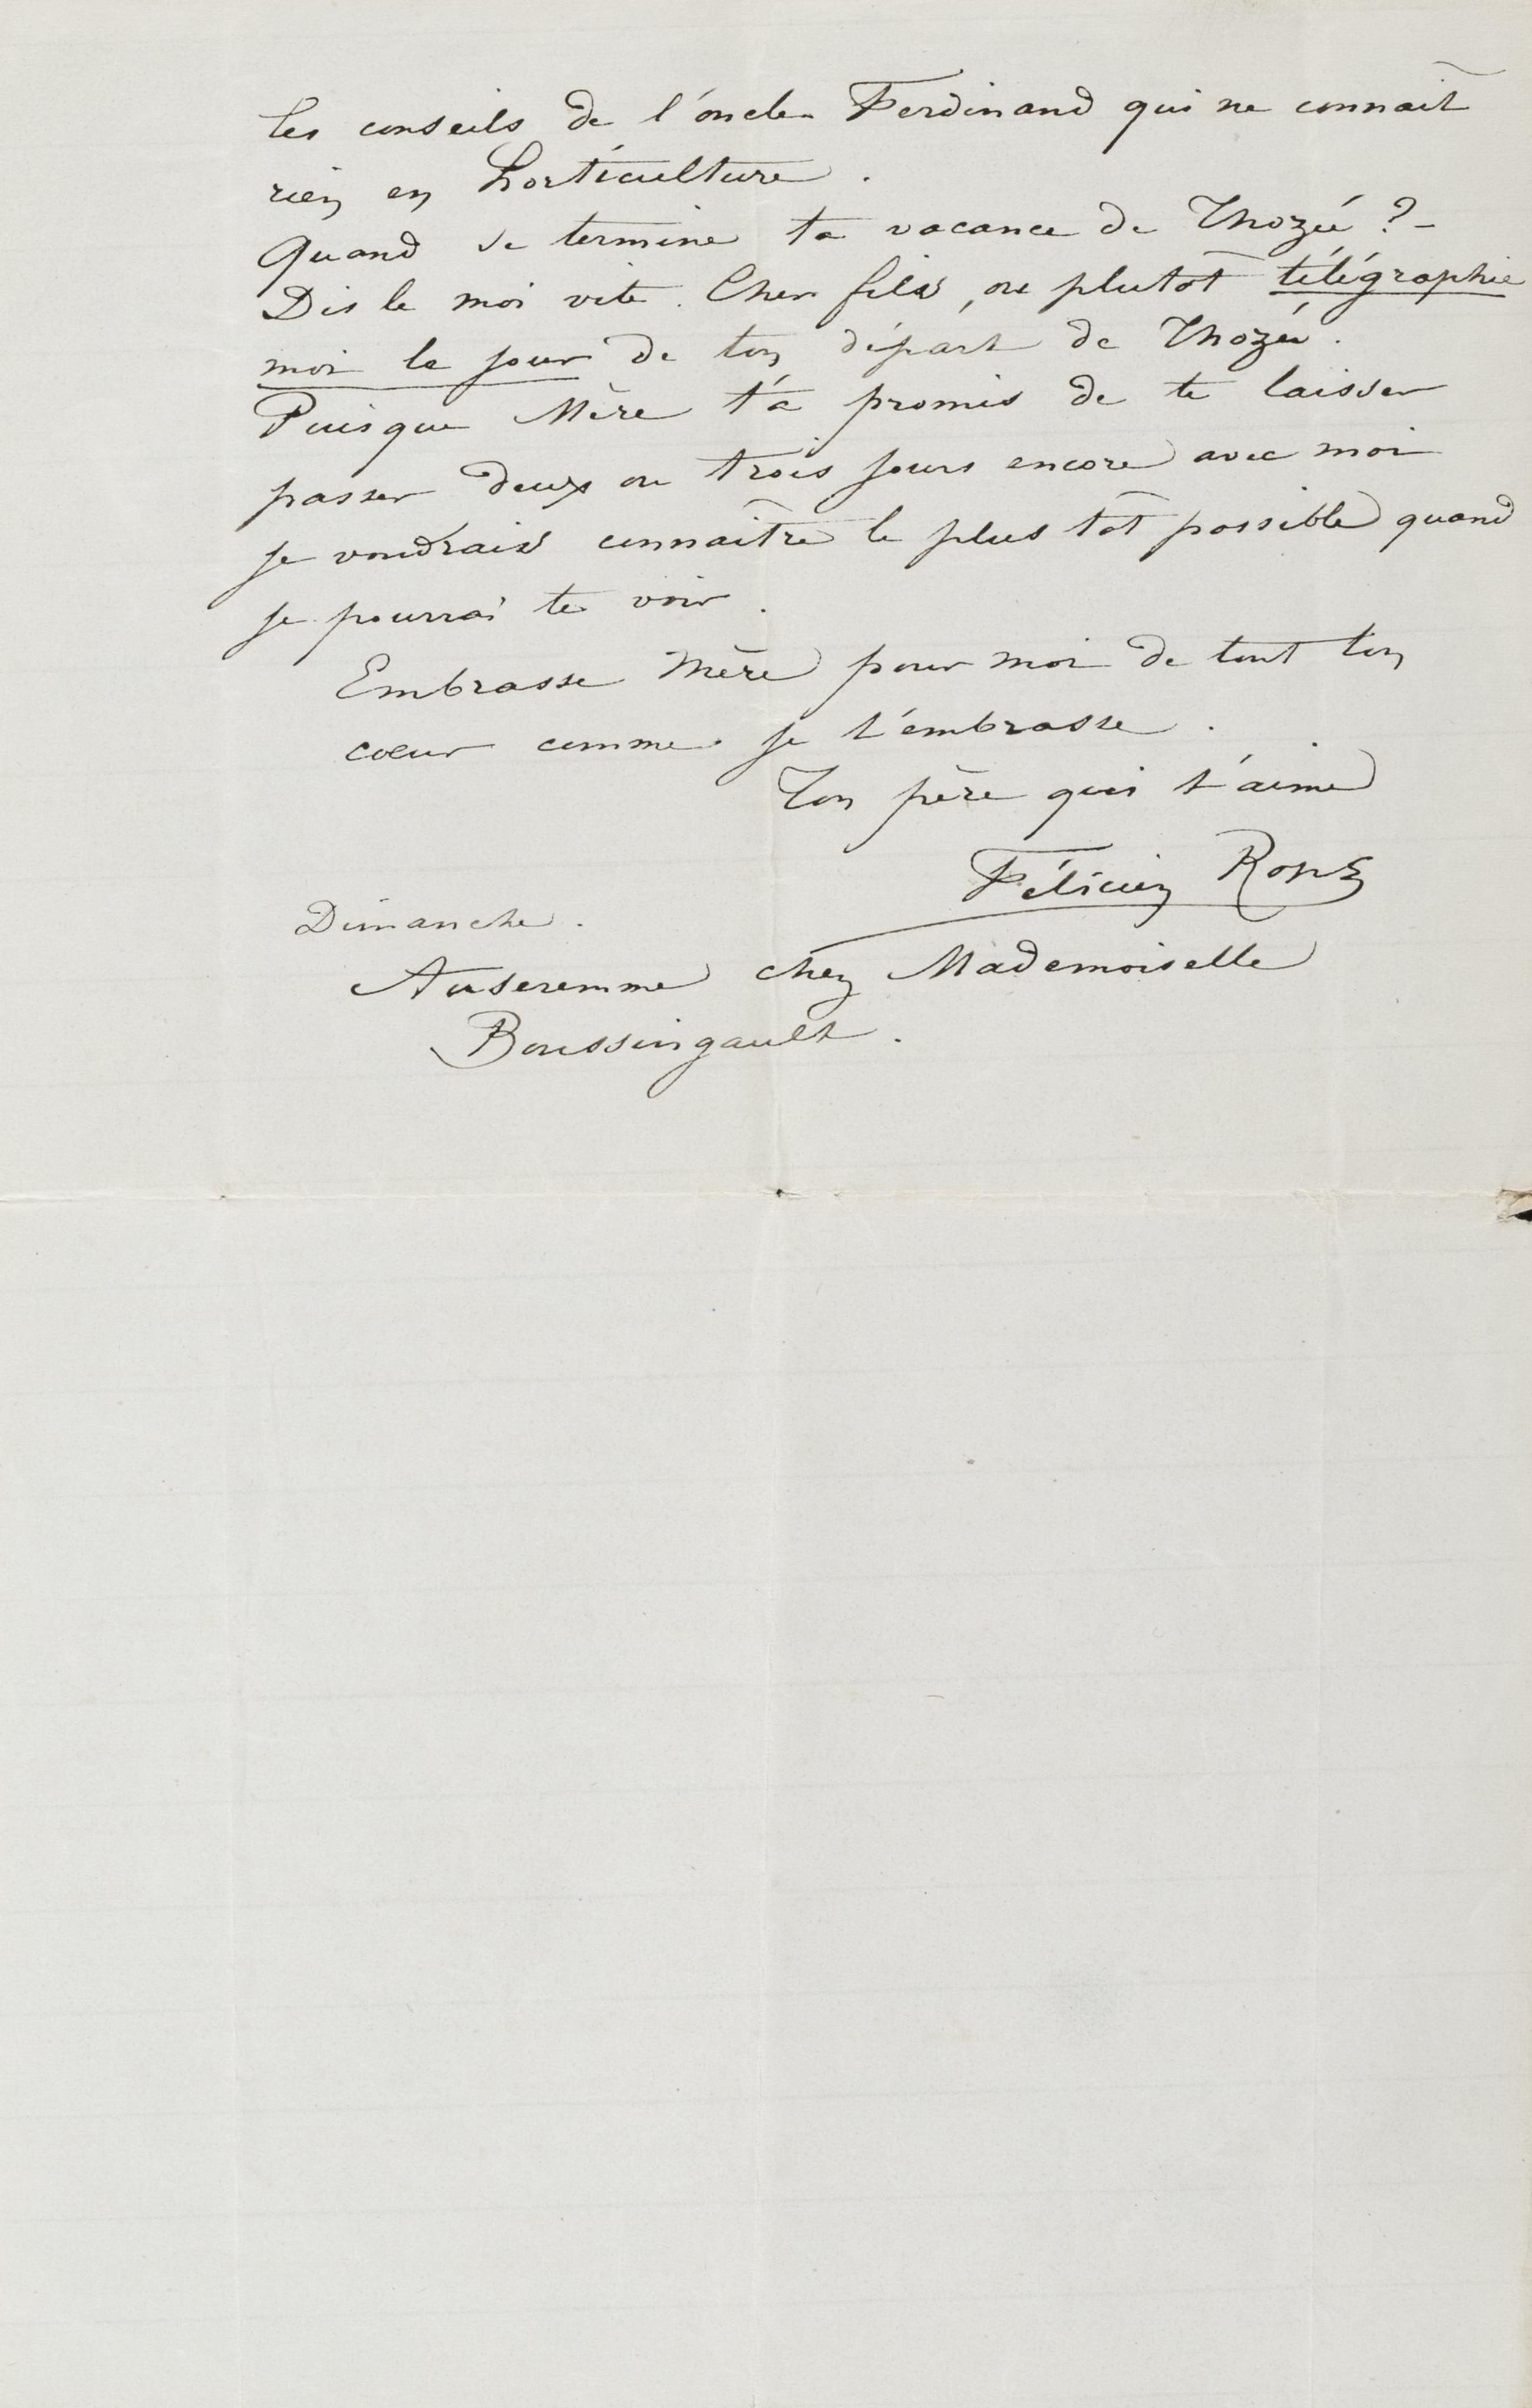 les conseils de l'oncle Ferdinand qui ne connait
rien en horticulture.
Quand se termine ta vacance de Thozée ? -
Dis le moi vite. Cher fils, ou plutôt télégraphie
moi le jour de ton départ de Thozée.
Puisque Mère t'a promis de te laisser
passer deux ou trois jours encore avec moi
je voudrais connaître le plus tôt possible quand
je pourrai te voir.
Embrasse Mère pour moi de tout ton
coeur comme je t'embrasse.
Ton père qui t'aime
Félicien Rops
Dimanche.
Anseremme chez Mademoiselle
Boussingault.